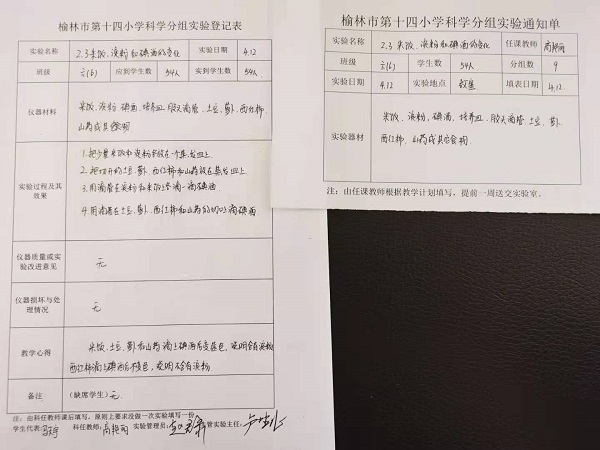 榆林市第十四小学科学分组实验登记表
实验名称 2.3米饭、淀粉和碘酒的变化 实验日期 4.12
班级 六(6) 应到学生数 54人 实到学生数 54人
仪器材料 米饭、淀粉、碘酒、培养皿、胶头滴管、土豆、萝卜、西红柿、
山药或其他食物
实验过程及其
效果
1.把少量米饭和淀粉分放在一个培养皿上
2.把切开的土豆、萝卜、西红柿和山药放在培养皿上
3.用滴管在淀粉和米饭上滴一滴碘酒
4.用滴管在土豆、萝卜、西红柿和山药的切口滴碘酒
仪器质量或实
验改进意见
无
仪器损坏与处
理情况
无
教学心得
米饭、土豆、萝卜和山药滴上碘酒后变蓝色，说明含有淀粉
西红柿滴上碘酒后不变色，说明不含有淀粉
备注 (缺席学生) 无
注：由科任教师课后填写，原则上要求没做一次实验填写一份
学生代表: 科任教师: 高艳丽 实验管理员: 管实验主任:
榆林市第十四小学科学分组实验通知单
实验名称 2.3 米饭、淀粉和碘酒的变化 任课教师 高艳丽
班级 六(6) 学生数 54人 分组数 9
实验日期 4.12 实验地点 教室 填表日期 4.12.
实验器材
米饭、淀粉、碘酒、培养皿、胶头滴管、土豆、萝卜、
西红柿、山药或其他食物
注：由任课教师根据教学计划填写，提前一周送交实验室。